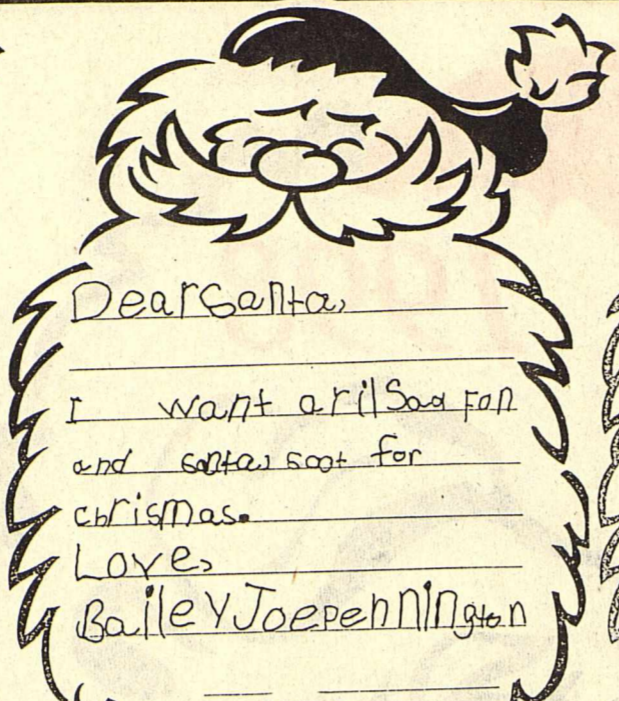 Dear Santa,
I want a ril Saa Fon
and santas soot for
chrismas.
Love,
Bailey Joe pennington